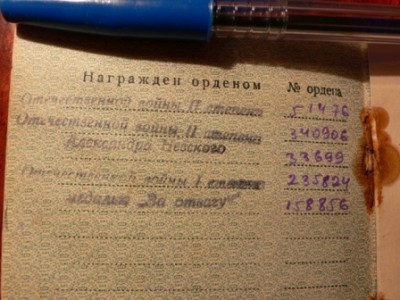 Награжден орденом № ордена
Отечественной войны II степени 51476
Отечественной войны II степени 340906
Александра Невского 33699
Отечественной войны I степени 235824
медалью „За отвагу“ 158856